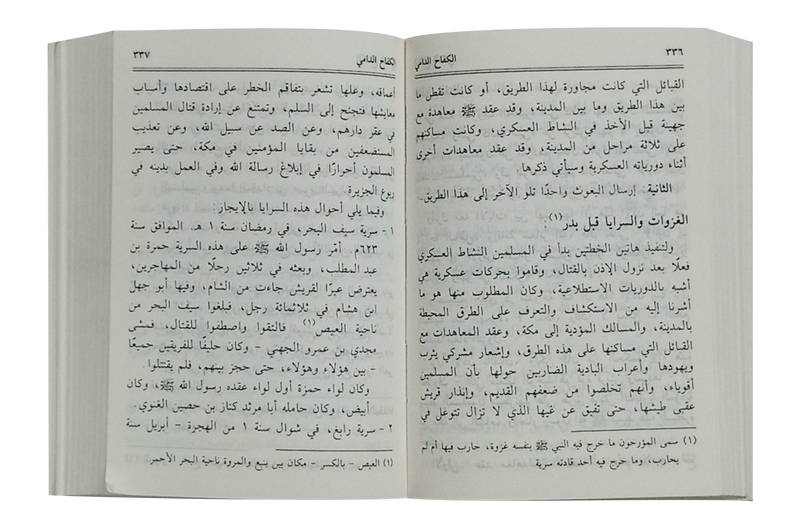 ٣٣٦ الكفاح الدامي
القبائل التي كانت مجاورة لهذا الطريق، أو كانت تقطن ما
بين هذا الطريق وما بين المدينة، وقد عقد ﷺ معاهدة مع
جهينة قبل الأخذ في النشاط العسكري، وكانت مساكنهم
على ثلاثة مراحل من المدينة، وقد عقد معاهدات أخرى
أثناء دورياته العسكرية وسيأتي ذكرها.
الثانية: إرسال البعوث واحدًا تلو الآخر إلى هذا الطريق.
الغزوات والسرايا قبل بدر(١)
ولتنفيذ هاتين الخطتين بدأ في المسلمين النشاط العسكري
فعلًا بعد نزول الإذن بالقتال، وقاموا بحركات عسكرية هي
أشبه بالدوريات الاستطلاعية، وكان المطلوب منها هو ما
أشرنا إليه من الاستكشاف والتعرف على الطرق المحيطة
بالمدينة، والمسالك المؤدية إلى مكة، وعقد المعاهدات مع
القبائل التي مساكنها على هذه الطرق، وإشعار مشركي يثرب
ويهودها وأعراب البادية الضاربين حولها بأن المسلمين
أقوياء، وأنهم تخلصوا من ضعفهم القديم، وإنذار قريش
عقبى طيشها، حتى تفيق عن غيها الذي لا تزال تتوغل في
(١) سمى المؤرخون ما خرج فيه النبي ﷺ بنفسه غزوة، حارب فيها أم لم
يحارب، وما خرج فيه أحد قادته سرية
الكفاح الدامي ٣٣٧
أعماقه، وعلها تشعر بتفاقم الخطر على اقتصادها وأسباب
معايشها فتجنح إلى السلم، وتمتنع عن إرادة قتال المسلمين
في عقر دارهم، وعن الصد عن سبيل الله، وعن تعذيب
المستضعفين من بقايا المؤمنين في مكة، حتى يصير
المسلمون أحرارًا في إبلاغ رسالة الله وفي العمل بدينه في
ربوع الجزيرة.
وفيما يلي أحوال هذه السرايا بالإيجاز:
١ - سرية سيف البحر، في رمضان سنة ١ هـ. الموافق سنة
٦٢٣م أمّر رسول الله ﷺ على هذه السرية حمزة بن
عبد المطلب، وبعثه في ثلاثين رجلًا من المهاجرين،
يعترض عيرًا لقريش جاءت من الشام، وفيها أبو جهل
ابن هشام في ثلاثمائة رجل، فبلغوا سيف البحر من
ناحية العيص(١) فالتقوا واصطفوا للقتال، فمشى
مجدي بن عمرو الجهني - وكان حليفًا للفريقين جميعًا
- بين هؤلاء وهؤلاء، حتى حجز بينهم، فلم يقتتلوا.
وكان لواء حمزة أول لواء عقده رسول الله ﷺ، وكان
أبيض، وكان حامله أبا مرثد كناز بن حصين الغنوي.
٢ - سرية رابغ، في شوال سنة ١ من الهجرة - أبريل سنة
(١) العيص - بالكسر - مكان بين ينبع والمروة ناحية البحر الأحمر.